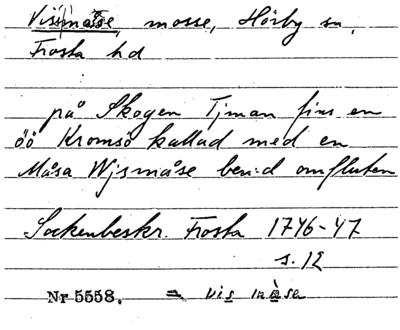 Vissmåse, mosse, Hörby sn,
Frosta hd
på Skogen Tjman fins en
öö Kromsö kallad med en
Måsa Wjsmåse ben:d omfluten
Sockenbeskr. Frosta 1746-47
s. 12
Nr 5558. = vis måse